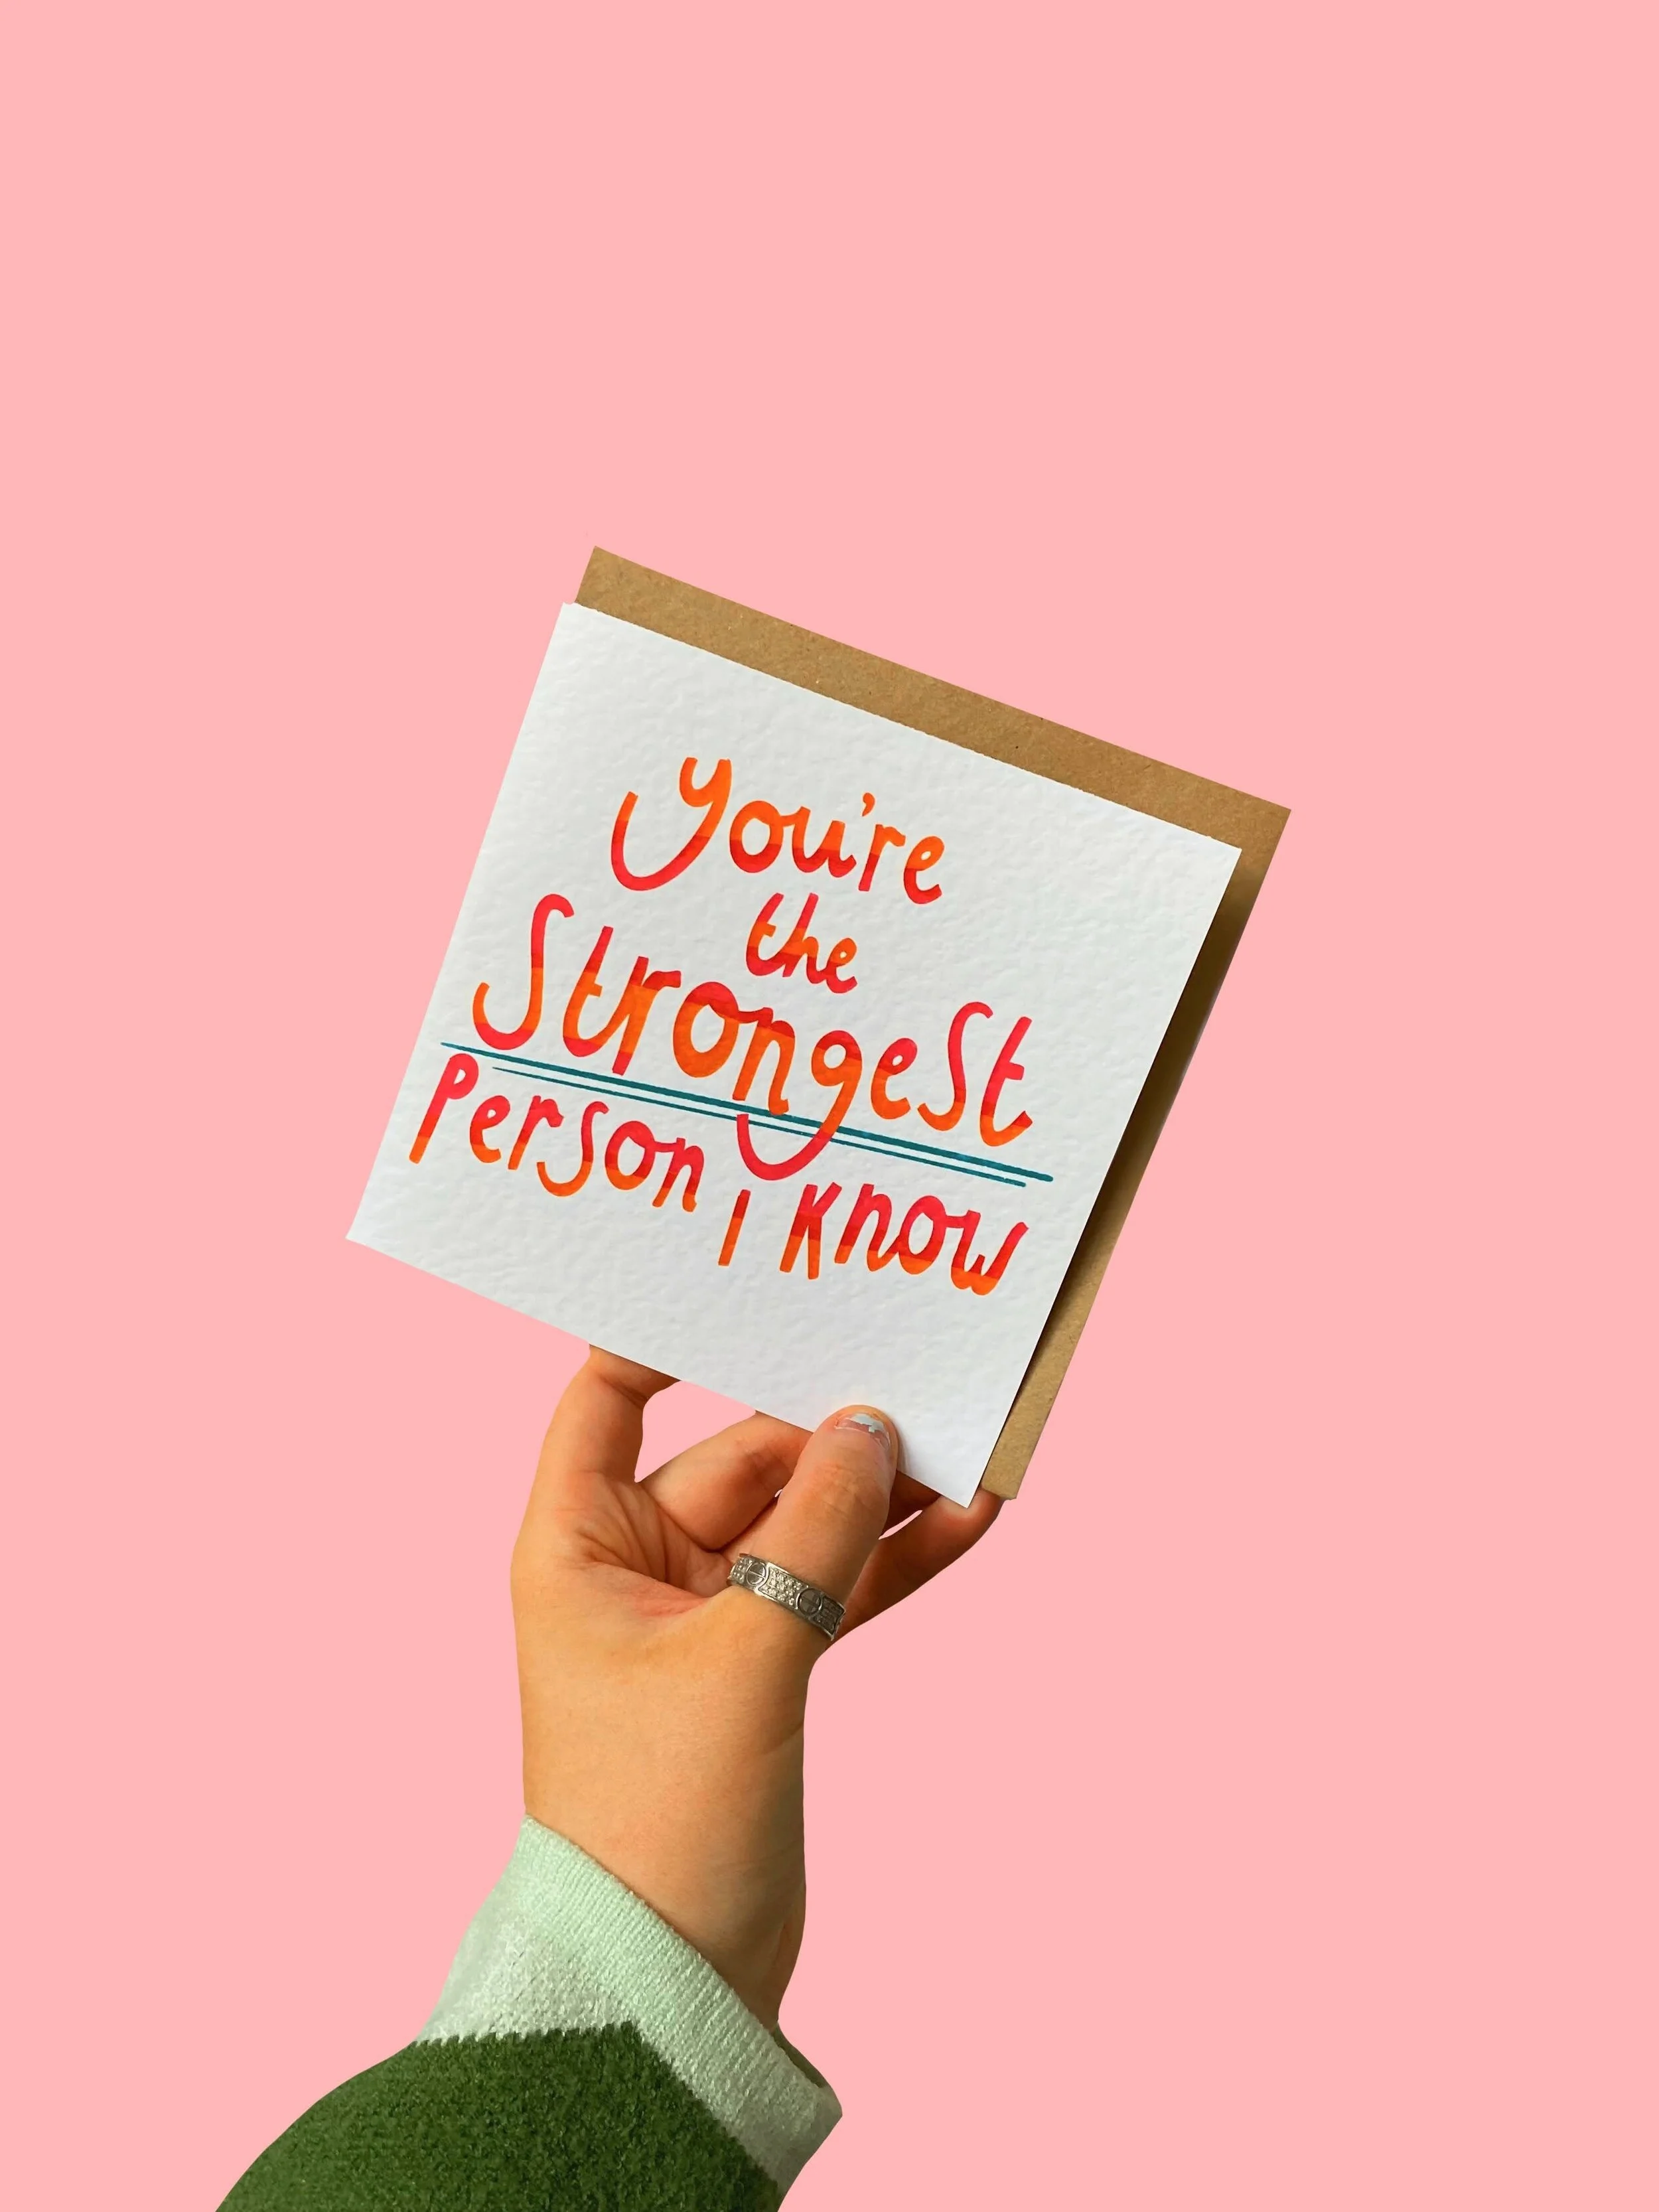 you're
the
Strongest
Person I know